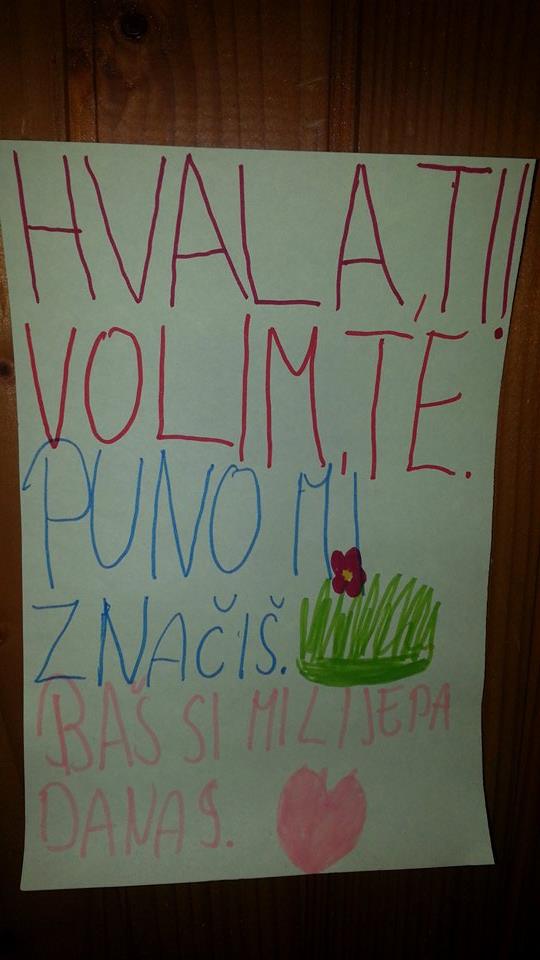 HVALA, TI!
VOLIM, TE.
PUNO MI
ZNAČIŠ.
BAŠ SI MI LIJEPA
DANAS.